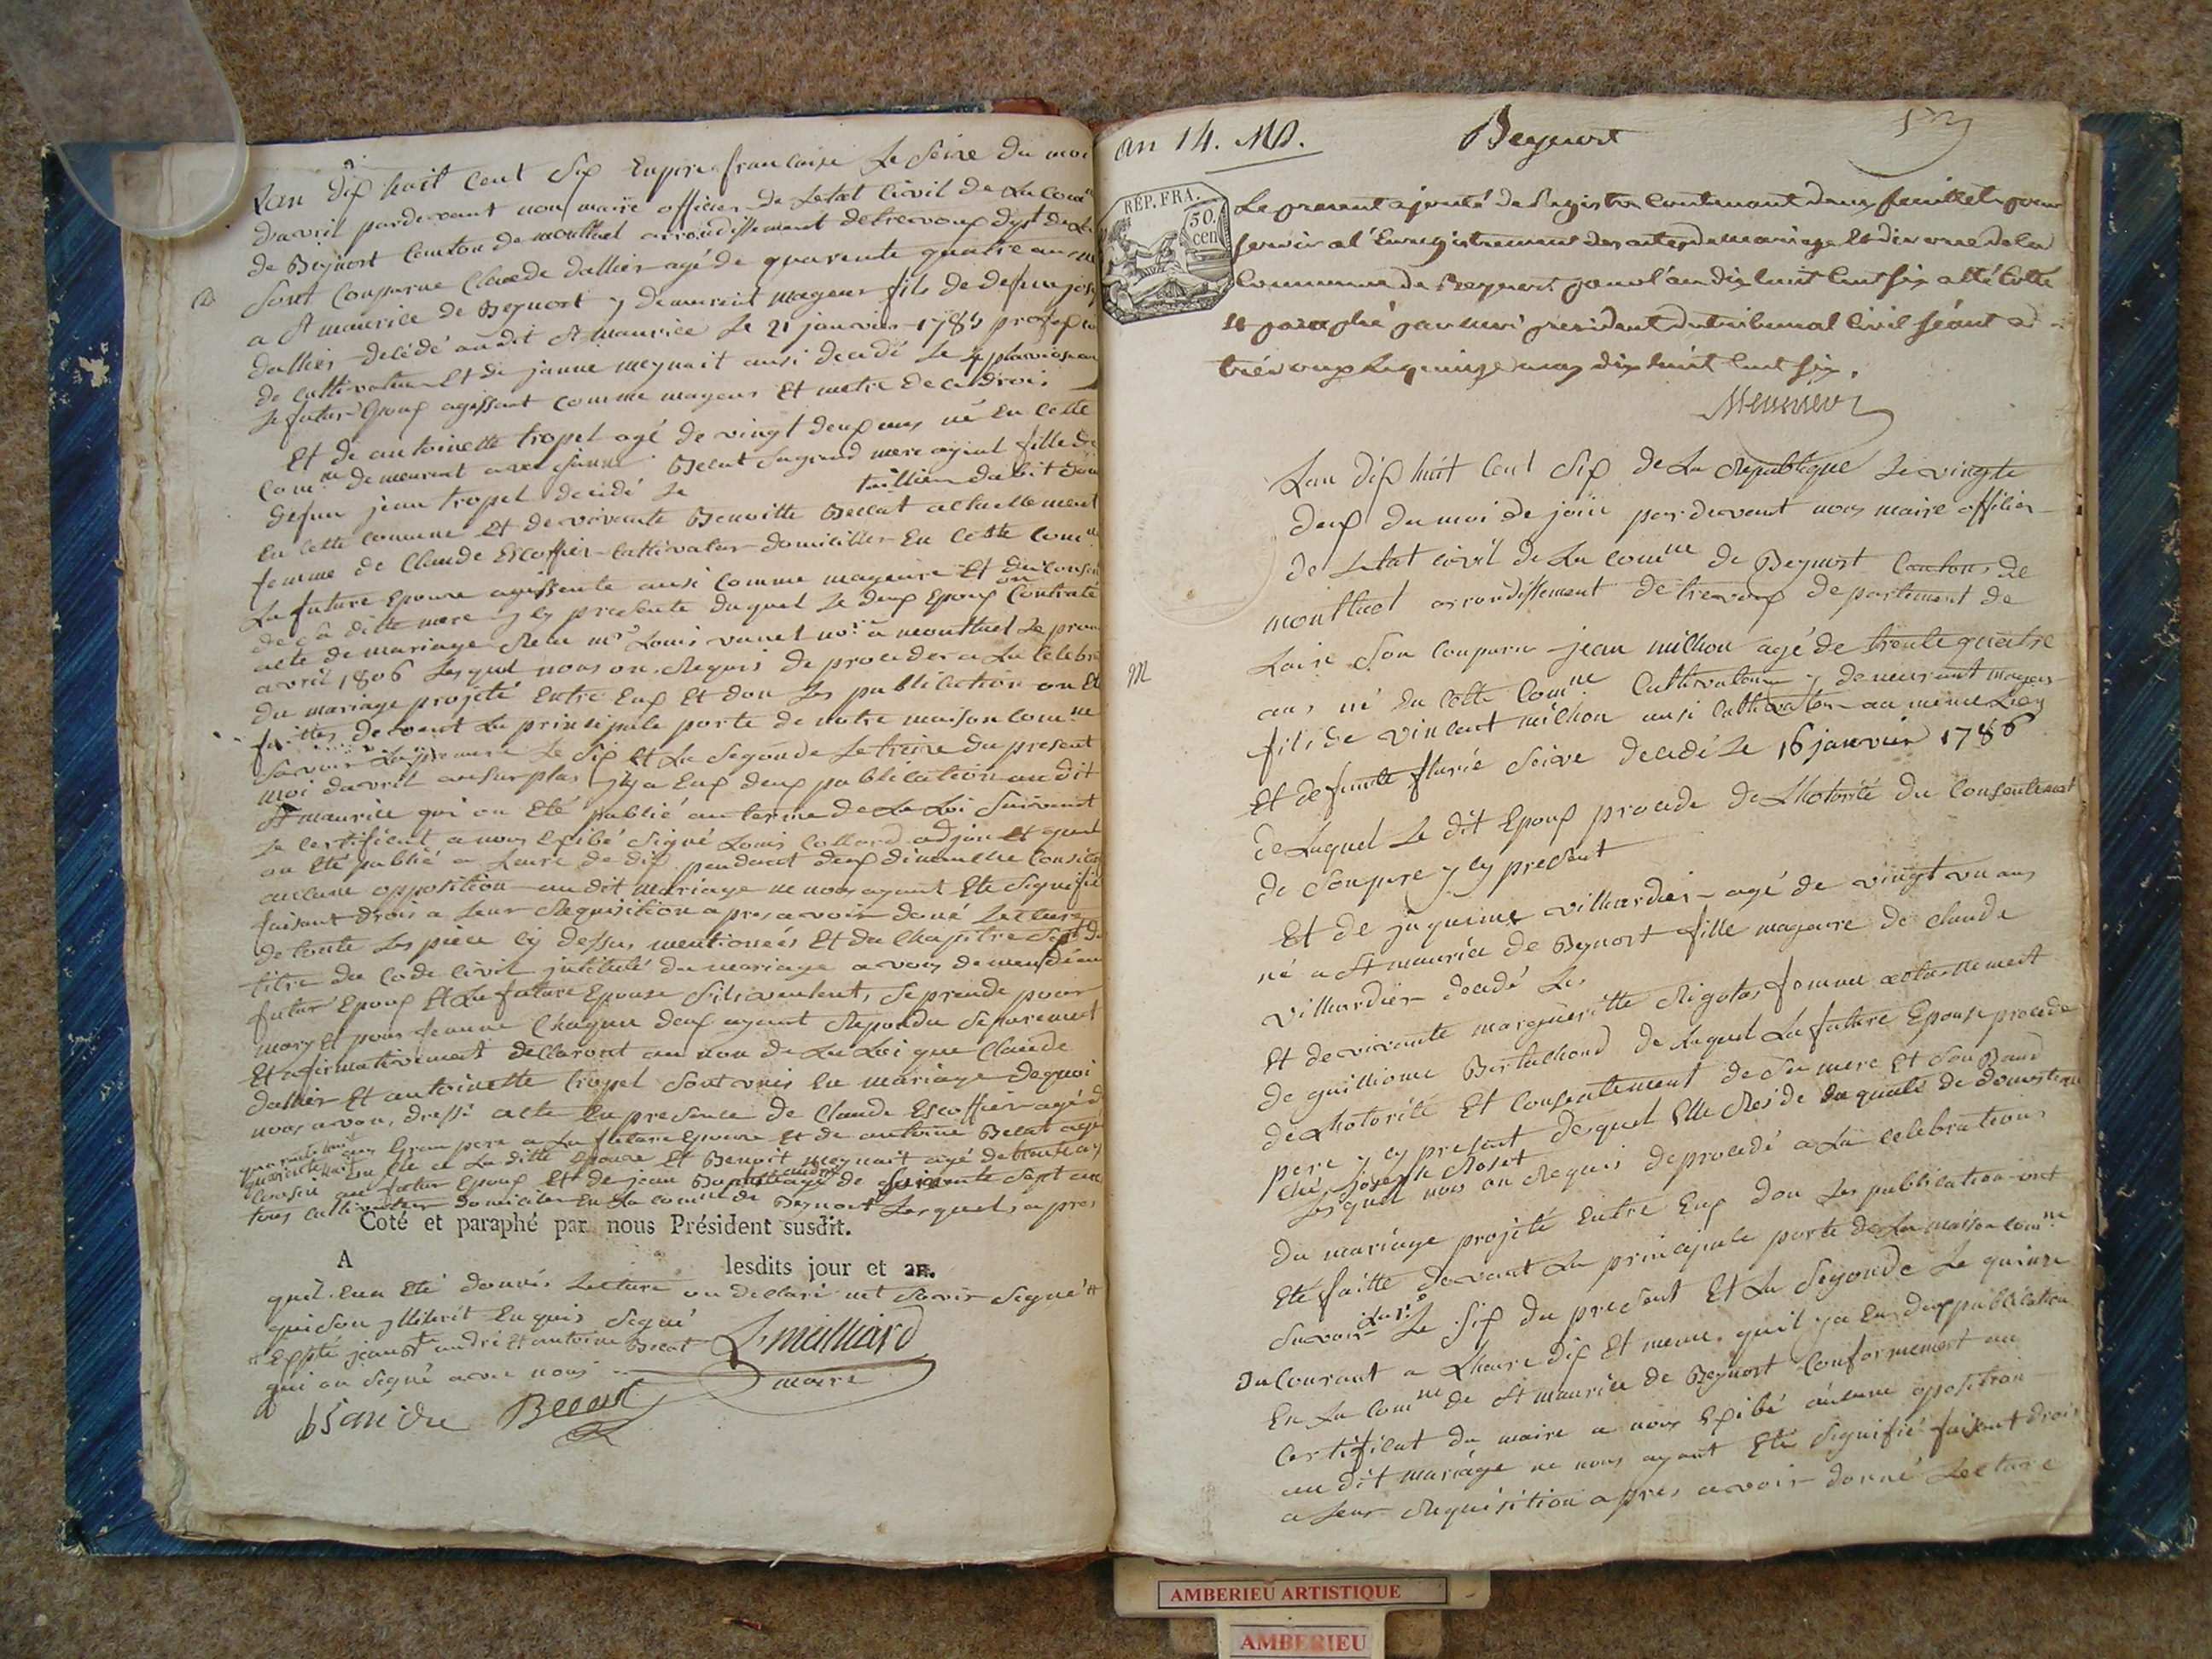 Lan dix huit Cent Six Empire francaise Le Seize du moi
davril pardevant nous maire officier de Letat Civil de La Com
de Beynost Canton de montluel arrondissement detrevoux dept de L
D
Sont Comparue Claude dallier agé de quarente quatre ans né
a St maurice de Beynost y demeurent mageur fils de defun jos
dallier décédé audit St maurice Le 21 janvier 1785
de Cultivateur Et de janne meynait ausi decedé Le
Le futur Epoux agissant Comme mageur Et metre de ce droi
Et de antoinette tropel agé de vingt deux ans né En Cette
Comne demeurent avec janne Becat Sagrand mere fille de
defun jean tropel decedé Le
En Cette Comune Et de vivante Benoitte Becat actuellement
femme de Claude Escoffier Cultivateur domicillier En Cette Comne
La future Epouse agissente ausi Comme mageure Et du Consen
de Sa ditte mere y Cy presente duquel Le deux Epoux on Contraté
acte de mariage Reçu mr Louis vanel nore a montluel Le
avril 1806 Lesquel nous on Requis de proceder a La Celebra
du mariage projeté Entre Eux Et don Les publication on Eté
faittes devant La principale porte de notre maison Comne
Savoir La premiere Le Six Et La Segonde Le treize du present
moi davril au Surplus y ya Eux deux publication au dit
St maurice qui on Eté publié au terme de La Loi Suivant
Le Certificat a nous Exibé Signé Louis Collard adjoin Et quel
on Eté publié a Leure de dix pendant deux dimanche
aucune opposition au dit mariage ne nous ayant Eté Signifié
faisant drois a Leur Requisition apres avoir doné Lecture
de toute Les piece Cy dessus mentioneés Et du Chapitre Sept du
titre du Code Civil intitulé du mariage avons demendé au
futur Epoux Et La future Epouse Sils veulent, Se prende pour
mary Et pour femme Chaqun deux ayant Repondu Separement
Et afirmativement declaront au nom de La Loi que Claude
dallier Et antoinette tropel Sont unis En mariage dequoi
nous avons dressé acte En presence de Claude Escoffier agé d
quarente huit ans Gran pere a La future Epouse Et de antoine Becat agé
a La ditte Epouse Et Benoit meynait agé de trente
Cousin au futur Epoux Et de jean St andré agé de Soisente Sept ans
tous cultivateur domicilier En La Comne de Beynost Lesquel, apres
Coté et paraphé par nous Président susdit.
A lesdits jour et an.
quil Leur Eté donnés Lecture on declaré net Savoir Signé #
qui Son Enquis Signé
# Exspté jean St andré Et antoine Becat
qui on Signé avec nous
L. mailliard
maire
Becat
an 14. MD.
Beynost
RÉP. FRA.
50 cen
Le present ajouté de Registre Contenant deux feuillets pour
servir a l'Enregistrement des actes de mariage Et divorce de la
Commune de Beynost pour l'an dix huit Cent six a été Cotté
Et paraphé par nous president du tribunal Civil séant a
trévoux Le quinze may dix huit Cent six.
Lan dix huit Cent Six de La Republique Le vingte
deux du moi de joüin pardevant nous maire officier
de Letat civil de La Comne de Beynost Canton de
montluel arrondissement de trevoux departement de
M
Lain Son Comparu jean milhon agé de trente quatre
ans né En Cette Comne Cultivateur y demeurant mageur
fils de vincent milhon ausi Cultivateur au meme Lieu
Et defunte fleurie Seive decedé Le 16 janvier 1786
de Laquel Le dit Epoux procede de Lhotorité du Consentement
de Son pere y Cy present
Et de jaqueime villiardier agé de vingt un ans
né a St maurice de Beynost fille mageure de Claude
villiardier decedé Le
Et de vivante margueritte Rigotas femme actuellement
de guilliome Bertalhond de Laquel La future Epouse procede
de Lhotorité Et Consentement de Sa mere Et Son Beau
pere y Cy present desquel Elle Reside En qualité de domestique
Ché Joseph Roset
Lesquel nous on Requis de procedé a La Celebration
du mariage projeté Entre Eux don Les publication ont
Eté faitte devant La principale porte de La maison Comne
Savoir La 1re Le Six du present Et La Segonde Le quinze
du Courant a Lheure dix Et meme quil ya Eu deux publication
En La Comne de St maurice de Beynost Conformement au
Certificat du maire a nous Exibé aucune oposition
au dit mariage ne nous ayant Eté Signifié faisant drois
a Leur Requisition apres avoir donné Lecture
AMBERIEU ARTISTIQUE
AMBERIEU